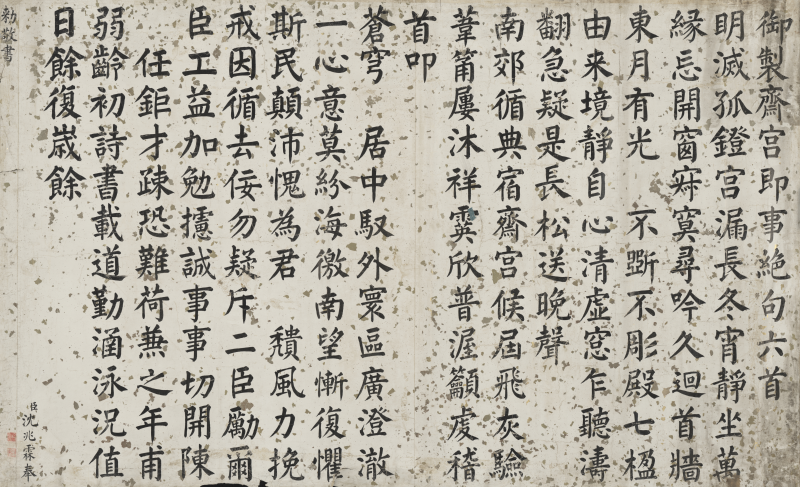 御製齋宫即事絶句六首
明滅孤鐙宫漏長冬宵靜坐萬
緣忘開窗寂寞尋吟久迴首牆
東月有光 不斲不彫殿七楹
由来境靜自心清虛窓乍聽濤
翻急疑是長松送晚聲
南郊循典宿齋宫候屆飛灰驗
葦籥屢沐祥霙欣普渥籲虔稽
首叩
蒼穹 居中馭外寰區廣澄澈
一心意莫紛海徼南望慚復懼
斯民顛沛愧為君 穨風力挽
戒因循去佞勿疑斥二臣勵爾
臣工益加勉攄誠事事切開陳
任鉅才疎恐難荷兼之年甫
弱齡初詩書載道勤涵泳況值
日餘復歲餘
臣沈兆霖奉
勅敬書